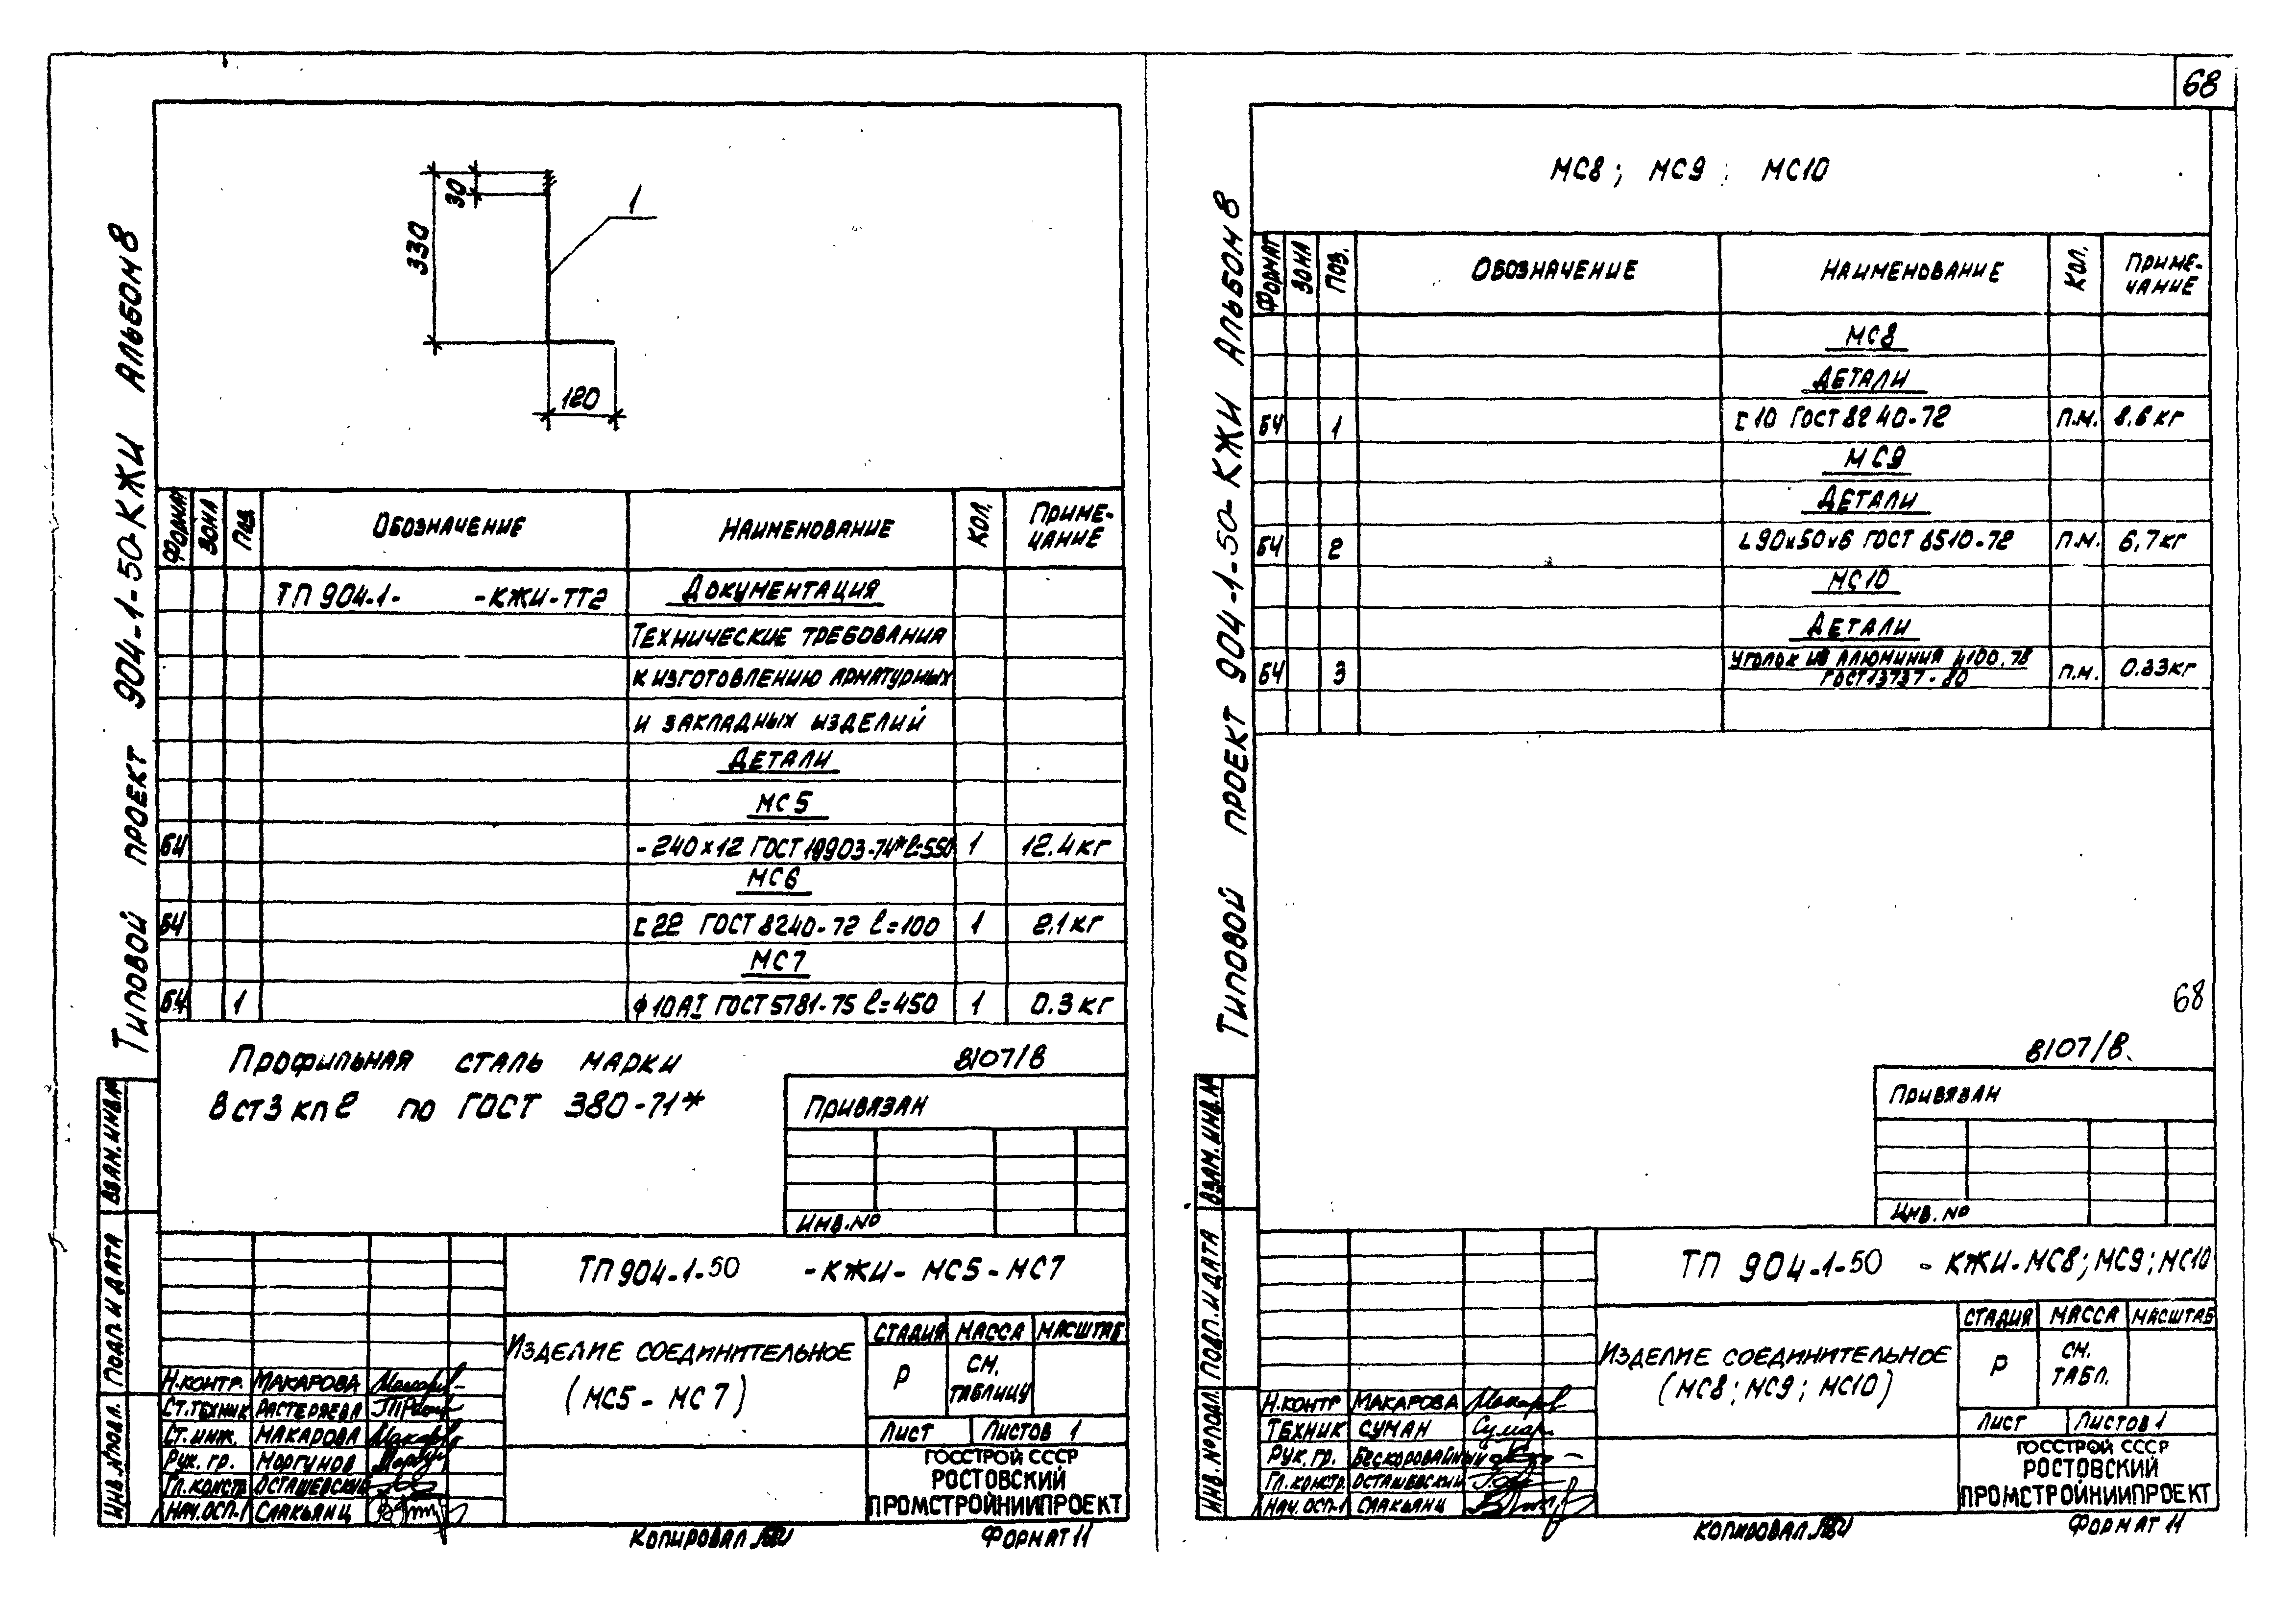 68
Типовой проект 904-1-50-КЖИ Альбом 8
330
30
1
120
Формат Зона Поз. Обозначение Наименование Кол. Приме-
чание
ТП 904-1- -КЖИ-ТТ2 Документация
Технические требования
к изготовлению арматурных
и закладных изделий
Детали
МС5
БЧ - 240х12 ГОСТ 19903-74* ℓ=550 1 12.4 кг
МС6
БЧ [ 22 ГОСТ 8240-72 ℓ=100 1 2,1 кг
МС7
БЧ 1 ϕ10АI ГОСТ 5781-75 ℓ=450 1 0.3 кг
Профильная сталь марки
Вст3кп2 по ГОСТ 380-71*
8107/8
Привязан
Инв.№
Взам.инв.№
Подп. и дата
Инв.№подл.
ТП 904-1-50 -КЖИ- МС5-МС7
Изделие соединительное
(МС5- МС7)
Стадия Масса Масштаб
Р см.
таблицу
Лист Листов 1
ГОССТРОЙ СССР
РОСТОВСКИЙ
ПРОМСТРОЙНИИПРОЕКТ
Н.контр. Макарова
Ст.техник Растеряева
Ст.инж. Макарова
Рук. гр. Моргунов
Гл.констр. Осташевский
Нач.ОСП-1 Саакьянц
Копировал
Формат 11
Типовой проект 904-1-50-КЖИ Альбом 8
МС8; МС9; МС10
Формат Зона Поз. Обозначение Наименование Кол. Приме-
чание
МС8
Детали
БЧ 1 [ 10 ГОСТ 8240-72 п.м. 8.6 кг
МС9
Детали
БЧ 2 L 90х50х6 ГОСТ 8510-72 п.м. 6,7 кг
МС10
Детали
БЧ 3 Уголок из алюминия п.м. 0.33 кг
ГОСТ 13737-80
68
8107/8
Привязан
Инв. №
Взам.инв.№
Подп. и дата
Инв.№подл.
ТП 904-1-50 -КЖИ-МС8; МС9; МС10
Изделие соединительное
(МС8; МС9; МС10)
Стадия Масса Масштаб
Р см.
табл.
Лист Листов 1
ГОССТРОЙ СССР
РОСТОВСКИЙ
ПРОМСТРОЙНИИПРОЕКТ
Н.контр Макарова
Техник Суман
Рук. гр. Бескоровайный
Гл.констр. Осташевский
Нач. ОСП-1 Саакьянц
Копировал
Формат 11